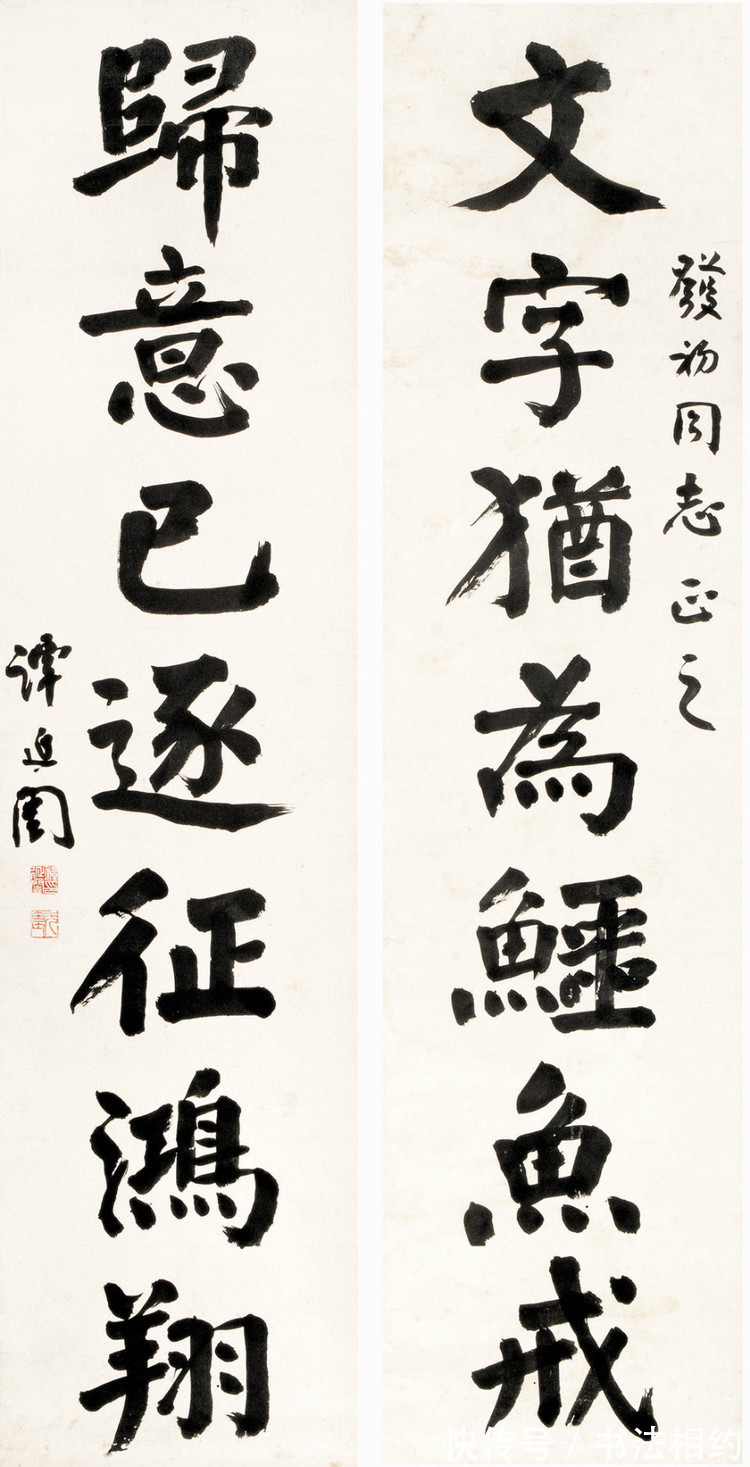 發初同志正之
文字猶為鱷魚戒
歸意已逐征鴻翔
譚延闓
快传号 / 书法相约